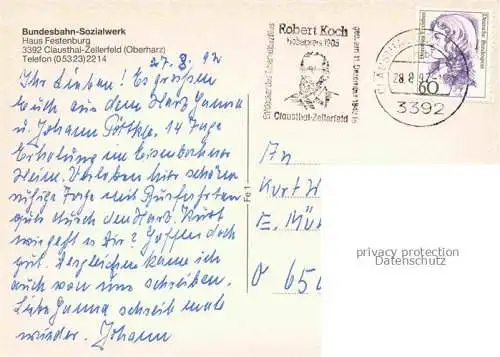 Bundesbahn-Sozialwerk
Haus Festenburg
3392 Clausthal-Zellerfeld (Oberharz)
Telefon (05323) 2214
27.8.92
Ihr Lieben! Es grüssen
Euch aus dem Harz Hanna
u. Johann 14 Tage
Erholung im Eisenbahner
Heim. Verleben hier schöne
ruhige Tage mit Busfahrten
quer durch den Harz. Kurt
wie geht es Dir? Hoffen doch
gut. Desgleichen kann ich
auch von uns schreiben.
Liebe Hanna schreib mal
wieder. Johann
Robert Koch
Nobelpreis 1905
Entdecker des Tuberkelbazillus
geb. am 11. Dezember 1843 in
Clausthal-Zellerfeld
CLAUSTHAL
28.8.92
3392
Deutsche Bundespost
60
Fe 1
An
Kurt W
E. Mü
O 65
privacy protection
Datenschutz